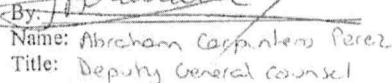 By:
Name: Abraham Carpintero Perez
Title: Deputy General Counsel